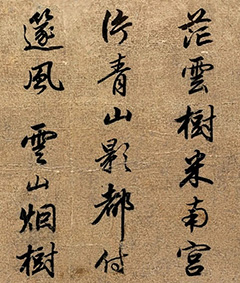 茫雲樹米南宮
片青山影都付
篷風　雲山烟樹